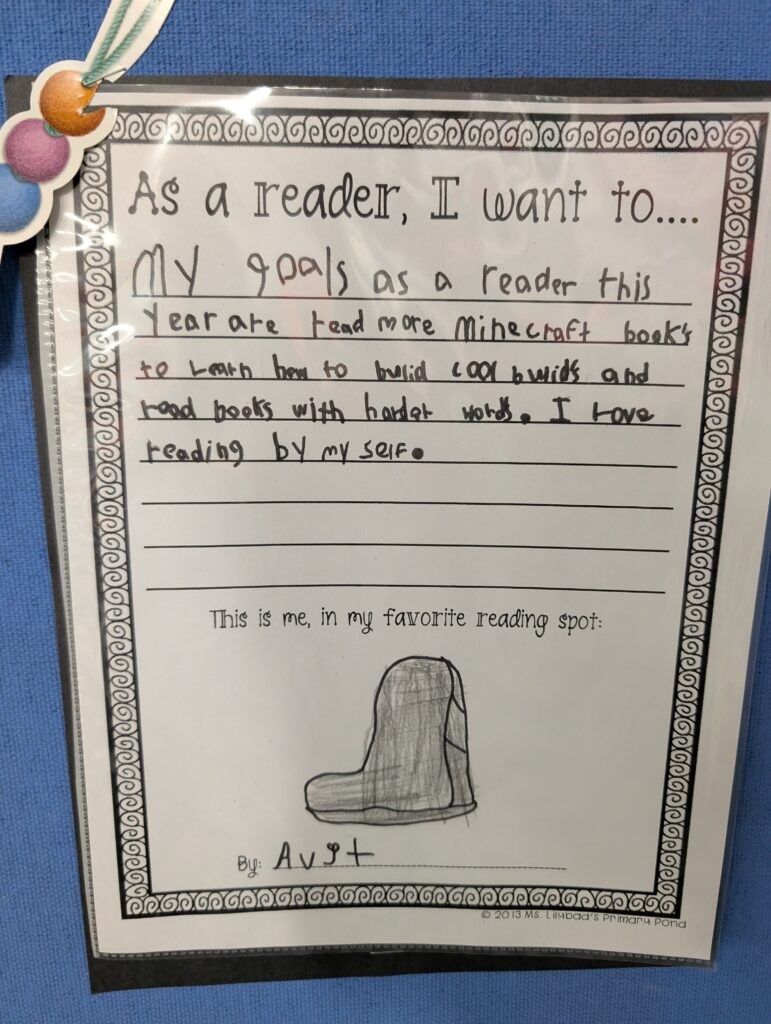 As a reader, I want to....
My goals as a reader this
Year are read more Minecraft book's
to Learn how to bulid cool bulid's and
read books with harder words. I Love
reading by my self.
This is me, in my favorite reading spot:
By: Avgt
© 2013 Ms. Lilypad's Primary Pond